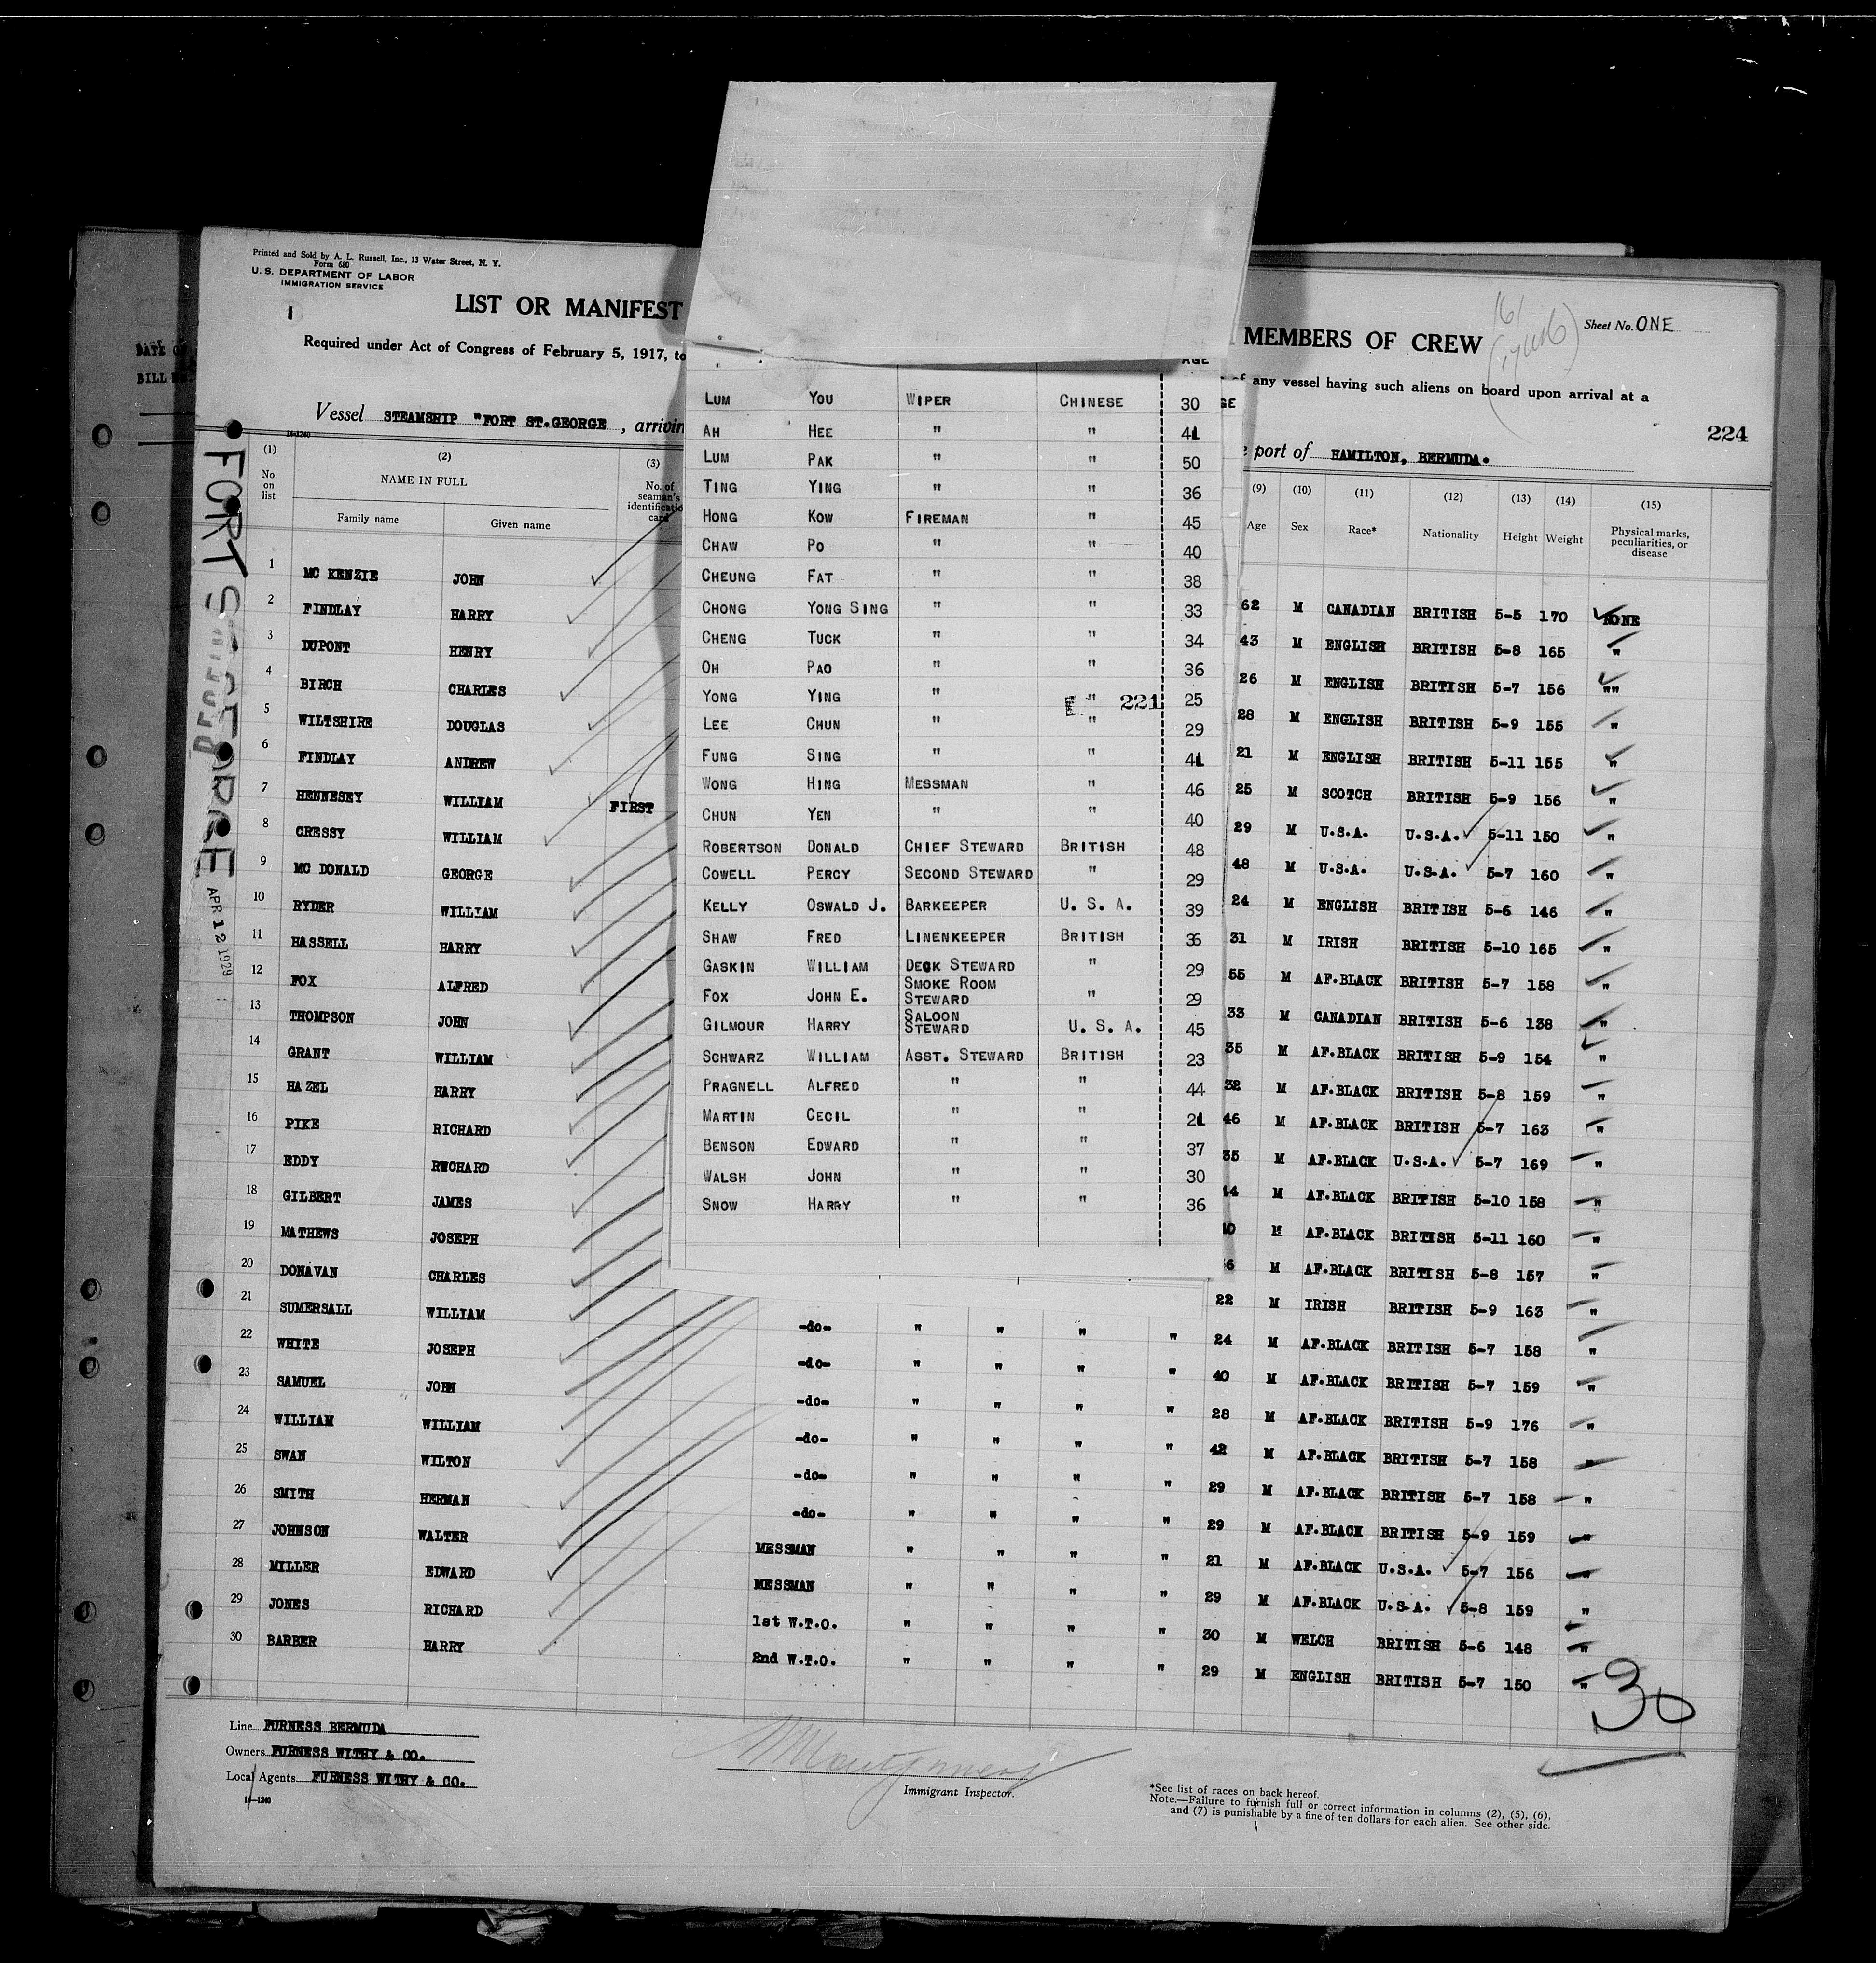 Printed and Sold by A. L. Russell, Inc., 13 Water Street, N. Y.
Form 680
U. S. DEPARTMENT OF LABOR
IMMIGRATION SERVICE
Sheet No. ONE
LIST OR MANIFEST MEMBERS OF CREW
Required under Act of Congress of February 5, 1917, to of any vessel having such aliens on board upon arrival at a
224
Vessel STEAMSHIP "FORT ST.GEORGE , arrivin port of HAMILTON, BERMUDA.
14-1240
FORT ST GEORGE
APR 12 1929
(1) (2) (3) (9) (10) (11) (12) (13) (14) (15)
No. on list NAME IN FULL No. of seaman's identification card Age Sex Race* Nationality Height Weight Physical marks, peculiarities, or disease
Family name Given name
1 MC KENZIE JOHN 62 M CANADIAN BRITISH 5-5 170 NONE
2 FINDLAY HARRY 43 M ENGLISH BRITISH 5-8 165 "
3 DUPONT HENRY 26 M ENGLISH BRITISH 5-7 156 ""
4 BIRCH CHARLES 28 M ENGLISH BRITISH 5-9 155 "
5 WILTSHIRE DOUGLAS 21 M ENGLISH BRITISH 5-11 155 "
6 FINDLAY ANDREW 25 M SCOTCH BRITISH 5-9 156 "
7 HENNESEY WILLIAM FIRST 29 M U.S.A. U.S.A. 5-11 150 "
8 CRESSY WILLIAM 48 M U.S.A. U.S.A. 5-7 160 "
9 MC DONALD GEORGE 24 M ENGLISH BRITISH 5-6 146 "
10 RYDER WILLIAM 31 M IRISH BRITISH 5-10 165 "
11 HASSELL HARRY 55 M AF.BLACK BRITISH 5-7 158 "
12 FOX ALFRED 33 M CANADIAN BRITISH 5-6 138 "
13 THOMPSON JOHN 35 M AF.BLACK BRITISH 5-9 154 "
14 GRANT WILLIAM 32 M AF.BLACK BRITISH 5-8 159 "
15 HAZEL HARRY 46 M AF.BLACK BRITISH 5-7 163 "
16 PIKE RICHARD 35 M AF.BLACK U.S.A. 5-7 169 "
17 EDDY RWCHARD 44 M AF.BLACK BRITISH 5-10 158 "
18 GILBERT JAMES M AF.BLACK BRITISH 5-11 160 "
19 MATHEWS JOSEPH M AF.BLACK BRITISH 5-8 157 "
20 DONAVAN CHARLES 22 M IRISH BRITISH 5-9 163 "
21 SUMERSALL WILLIAM -do- " " " " 24 M AF.BLACK BRITISH 5-7 158 "
22 WHITE JOSEPH -do- " " " " 40 M AF.BLACK BRITISH 5-7 159 "
23 SAMUEL JOHN -do- " " " " 28 M AF.BLACK BRITISH 5-9 176 "
24 WILLIAM WILLIAM -do- " " " " 42 M AF.BLACK BRITISH 5-7 158 "
25 SWAN WILTON -do- " " " " 29 M AF.BLACK BRITISH 5-7 158 "
26 SMITH HERMAN -do- " " " " 29 M AF.BLACK BRITISH 5-9 159 "
27 JOHNSON WALTER MESSMAN " " " " 21 M AF.BLACK U.S.A. 5-7 156 "
28 MILLER EDWARD MESSMAN " " " " 29 M AF.BLACK U.S.A. 5-8 159 "
29 JONES RICHARD 1st W.T.O. " " " " 30 M WELCH BRITISH 5-6 148 "
30 BARBER HARRY 2nd W.T.O. " " " " 29 M ENGLISH BRITISH 5-7 150 "
30
AGE
LUM YOU WIPER CHINESE 30
AH HEE " " 41
LUM PAK " " 50
TING YING " " 36
HONG KOW FIREMAN " 45
CHAW PO " " 40
CHEUNG FAT " " 38
CHONG YONG SING " " 33
CHENG TUCK " " 34
OH PAO " " 36
YONG YING " " 221 25
LEE CHUN " " 29
FUNG SING " " 41
WONG HING MESSMAN " 46
CHUN YEN " " 40
ROBERTSON DONALD CHIEF STEWARD BRITISH 48
COWELL PERCY SECOND STEWARD " 29
KELLY OSWALD J. BARKEEPER U. S. A. 39
SHAW FRED LINENKEEPER BRITISH 36
GASKIN WILLIAM DECK STEWARD " 29
FOX JOHN E. SMOKE ROOM STEWARD " 29
GILMOUR HARRY SALOON STEWARD U. S. A. 45
SCHWARZ WILLIAM ASST. STEWARD BRITISH 23
PRAGNELL ALFRED " " 44
MARTIN CECIL " " 21
BENSON EDWARD " " 37
WALSH JOHN " " 30
SNOW HARRY " " 36
Line FURNESS BERMUDA
Owners FURNESS WITHY & CO.
Local Agents FURNESS WITHY & CO.
14-1240
Immigrant Inspector.
*See list of races on back hereof.
Note.—Failure to furnish full or correct information in columns (2), (5), (6),
and (7) is punishable by a fine of ten dollars for each alien. See other side.